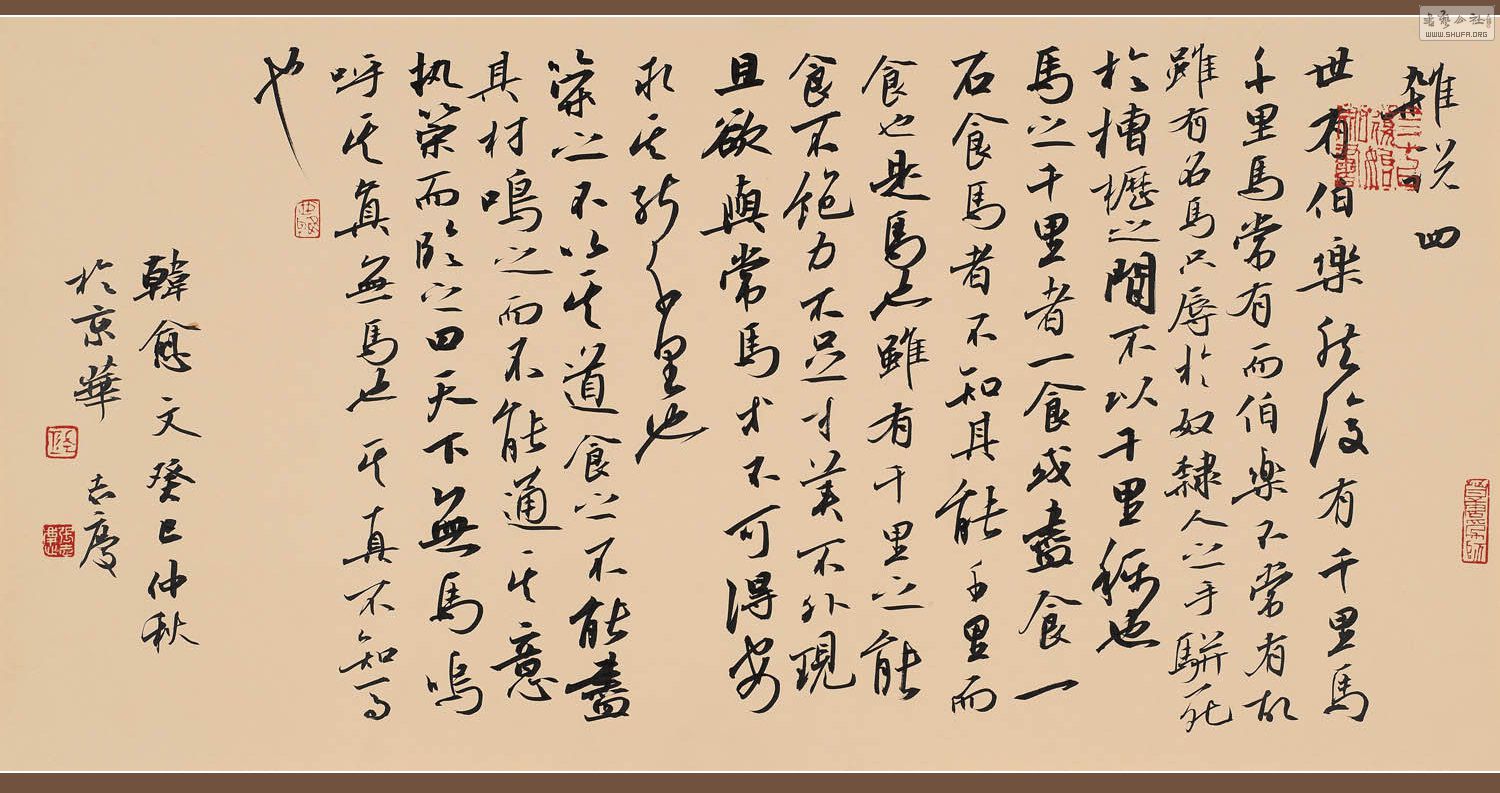 雜説四
世有伯樂然後有千里馬
千里馬常有而伯樂不常有故
雖有名馬只辱於奴隸人之手駢死
於槽櫪之間不以千里稱也
馬之千里者一食或盡食一
石食馬者不知其能千里而
食也是馬也雖有千里之能
食不飽力不足才美不外現
且欲與常馬才不可得安
求其能千里也
策之不以其道食之不能盡
其材鳴之而不能通其意
執策而臨之曰天下無馬嗚
呼其真無馬也其真不知馬
也
韓愈文癸巳仲秋
於京華 吉慶
書藝公社
WWW.SHUFA.ORG